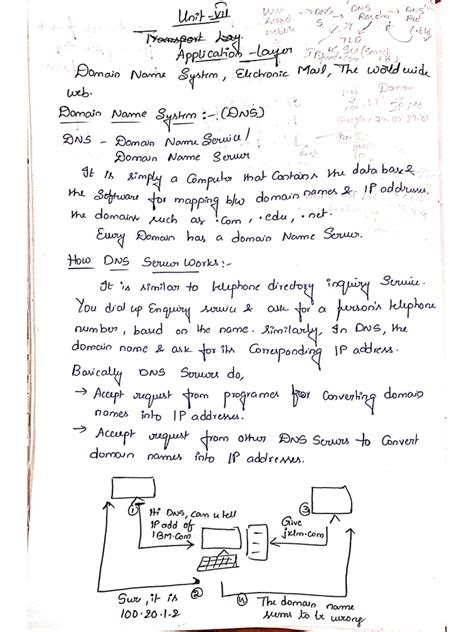 Unit - VII
Transport Lay
Application - layer
Domain Name System, Electronic Mail, The world wide
web.
Domain Name System :- (DNS)
DNS - Domain Name Service /
Domain Name Server
It is simply a Computer that Contains the database &
the Software for mapping b/w domain names & IP addresses.
the domains such as .com, .edu, .net.
Every Domain has a domain Name Server.
How DNS Server Works :-
It is similar to telephone directory inquiry Service.
You dial up Enquiry service & ask for a person's telephone
number, based on the name. Similarly, In DNS, the
domain name & ask for its Corresponding IP address.
Basically DNS Servers do,
→ Accept request from programes for Converting domain
names into IP addresses.
→ Accept request from other DNS Servers to Convert
domain names into IP addresses.
①
Hi DNS, can u tell
IP add of
IBM.com
③
Give
jklm.com
Sure, it is
100.20.1.2
②
④ The domain name
seems to be wrong